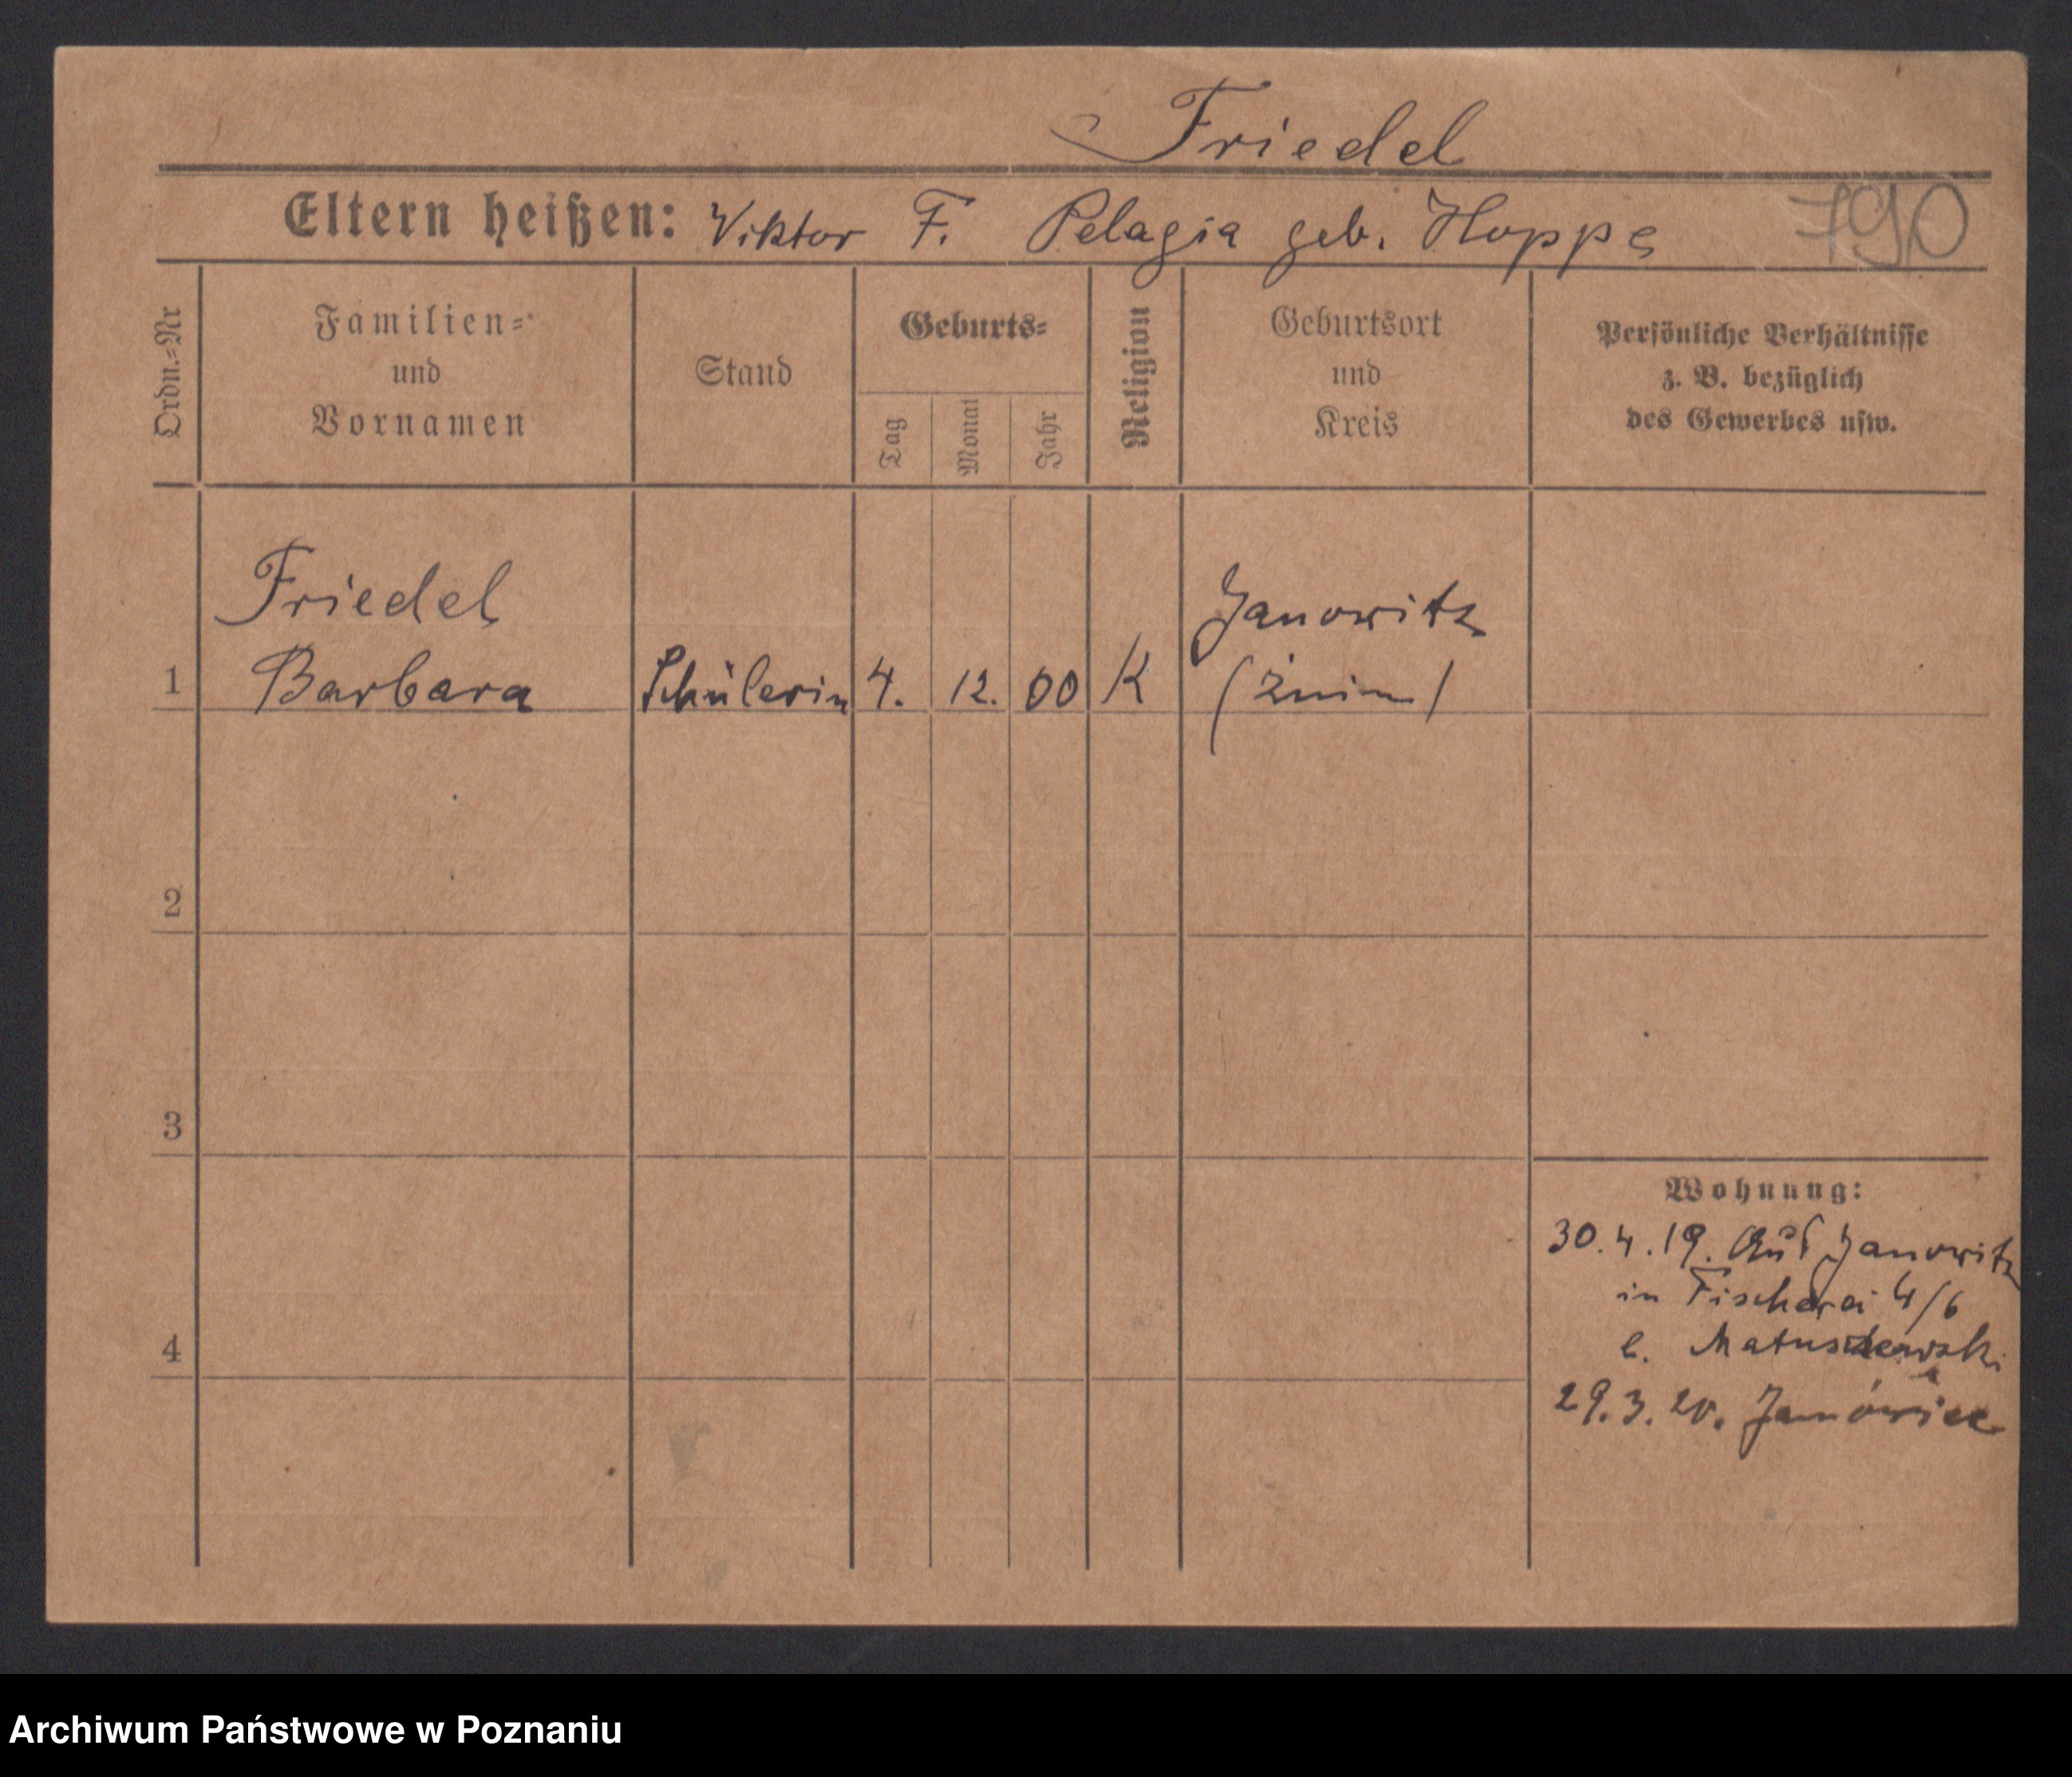 Friedel
Eltern heißen: Viktor F. Pelagia geb. Hoppe
790
Ordn.=Nr
Familien=
und
Vornamen
Stand
Geburts=
Tag
Monat
Jahr
Religion
Geburtsort
und
Kreis
Persönliche Verhältnisse
z. B. bezüglich
des Gewerbes usw.
Friedel
Janowitz
1 Barbara Schülerin 4. 12. 00 K (Żnin)
2
3
4
Wohnung:
30.4.19. Aus Janowitz
in Fischerei 4/6
b. Matuszewski
29.3.20. Janówiec
Archiwum Państwowe w Poznaniu